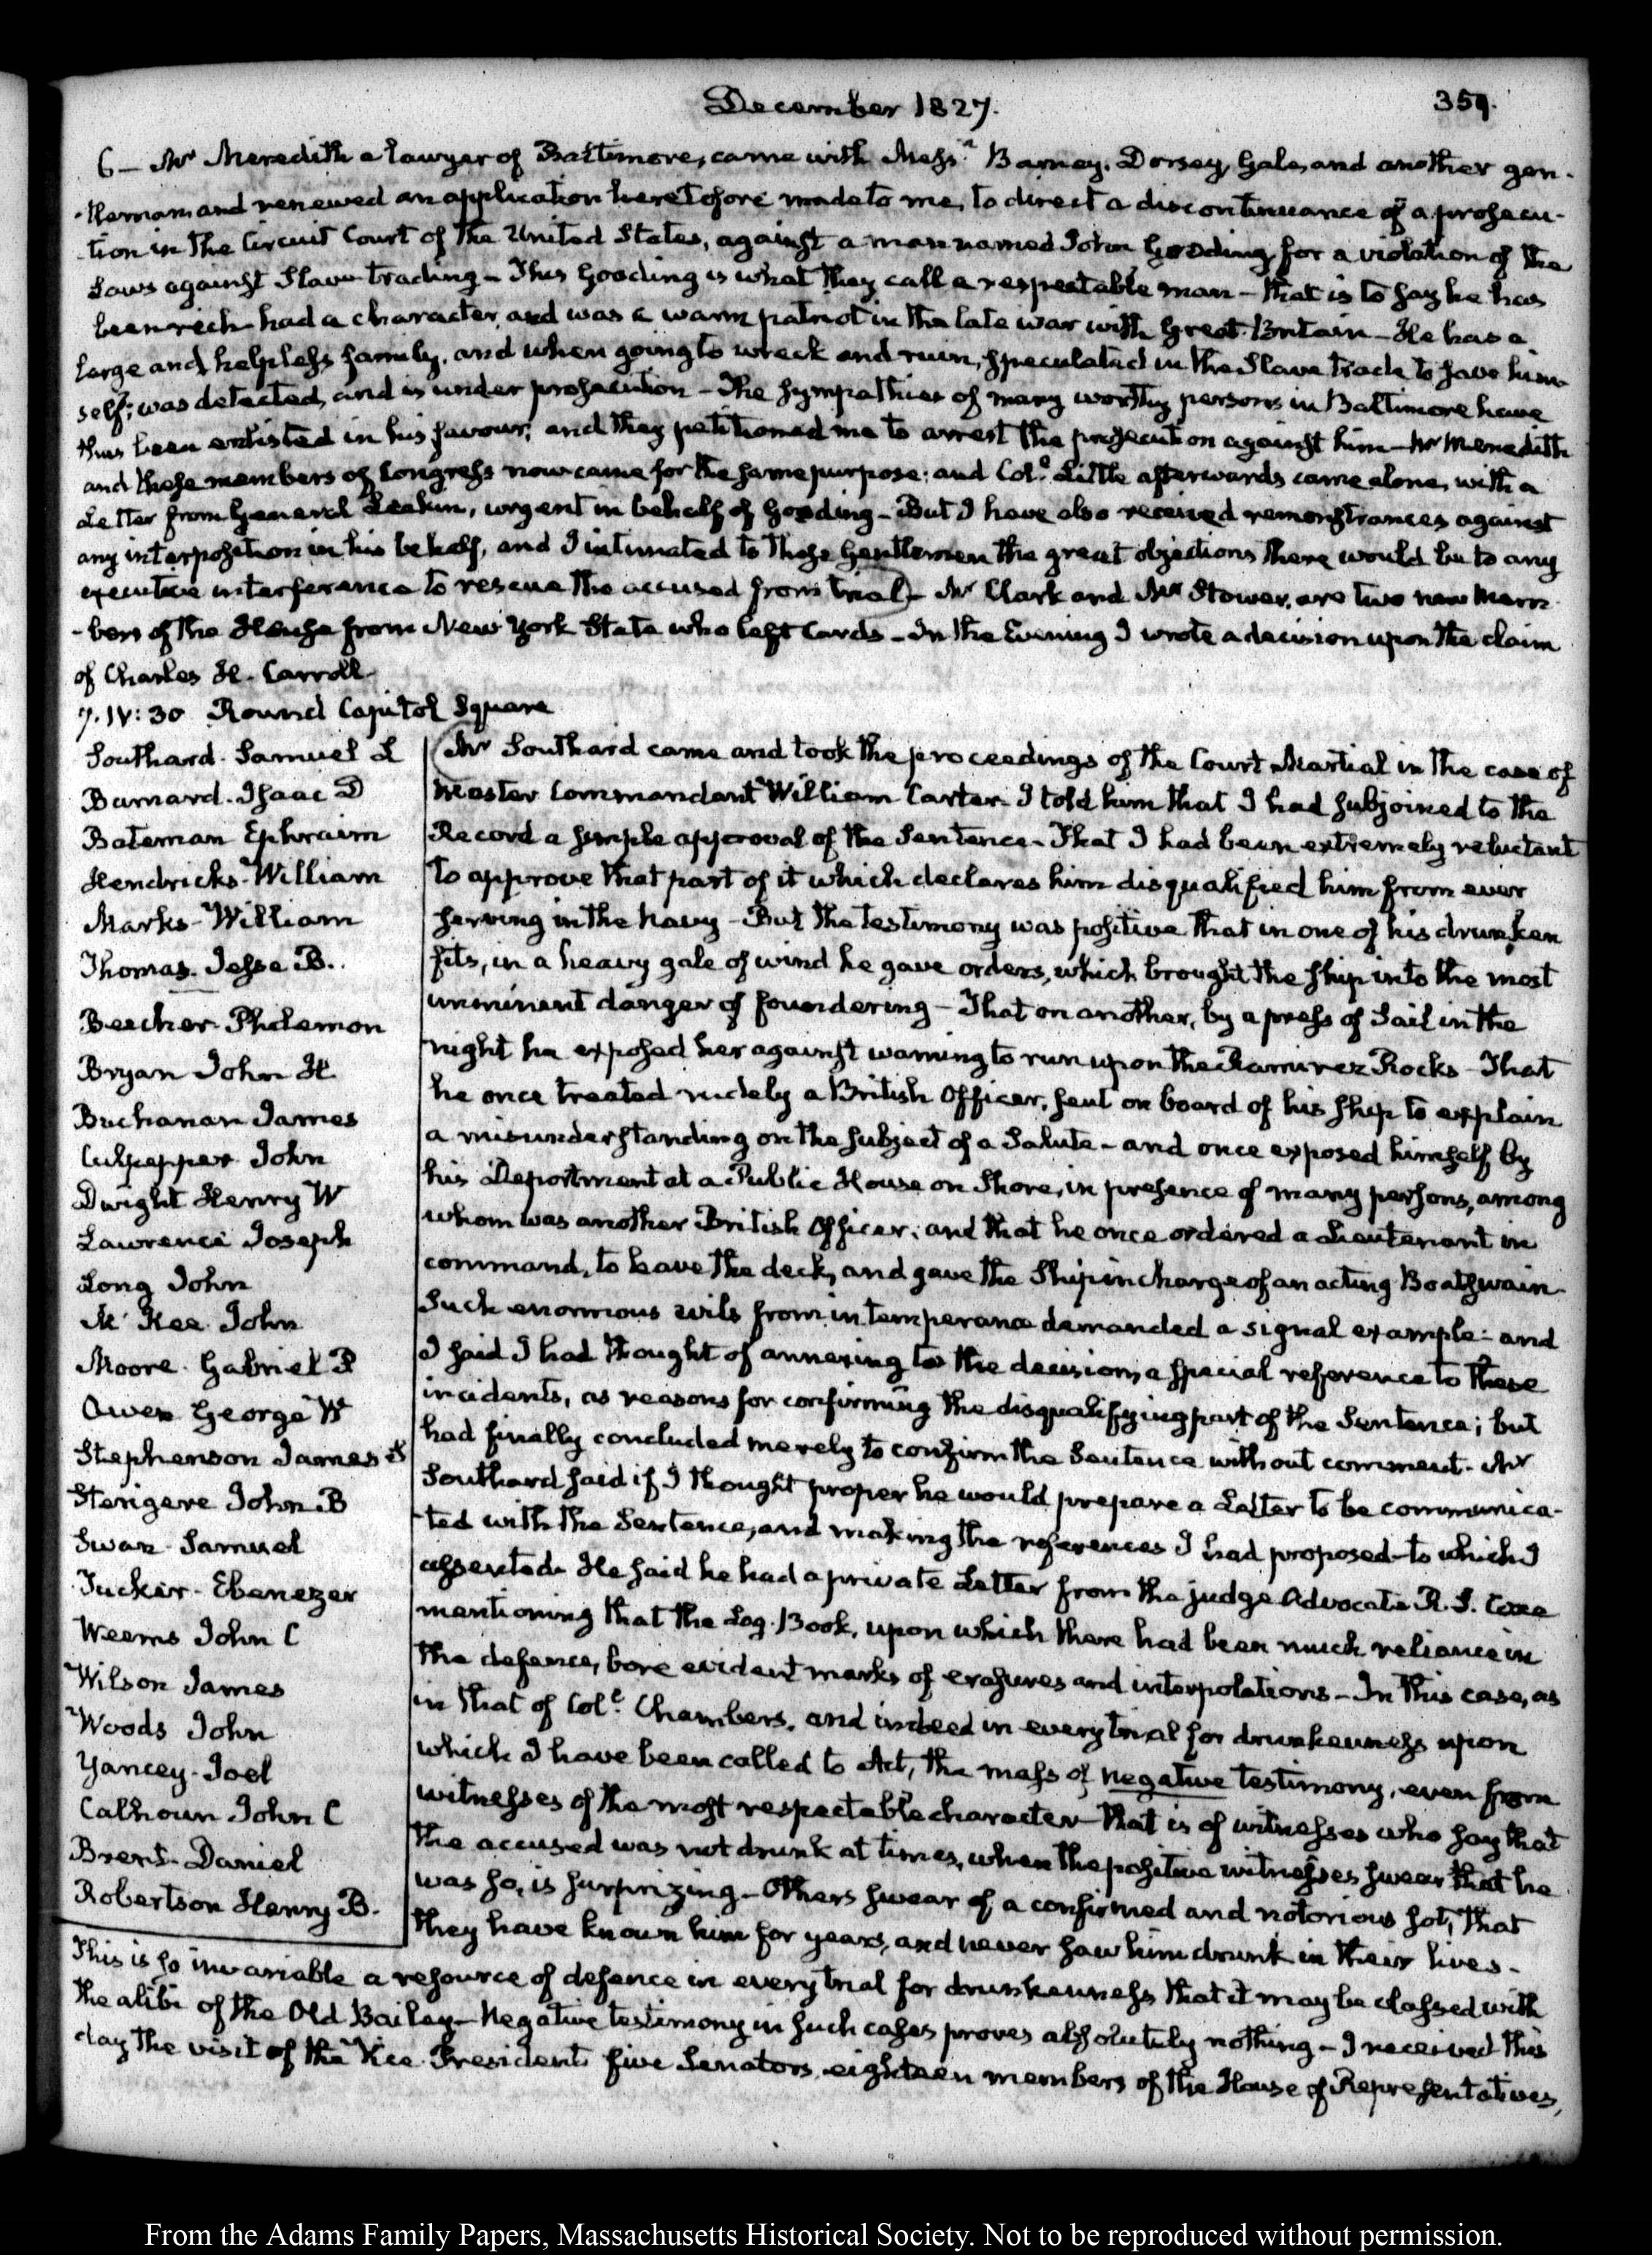 December 1827.
359.
6 — Mr Meredith a lawyer of Baltimore, came with Messrs Barney, Dorsey, Gale, and another gen-
-tleman and renewed an application heretofore made to me, to direct a discontinuance of a prosecu-
-tion in the Circuit Court of the United States, against a man named John Gooding for a violation of the
Laws against Slave trading – This Gooding is what they call a respectable man – that is to say he has
been rich had a character, and was a warm patriot in the late war with Great-Britain – He has a
large and helpless family, and when going to wreck and ruin, speculated in the Slave trade to save him-
self; was detected, and is under prosecution – The sympathies of many worthy persons in Baltimore have
thus been enlisted in his favour; and they petitioned me to arrest the prosecution against him – Mr Meredith
and these members of Congress now came for the same purpose; and Col.e Little afterwards came alone, with a
Letter from General Leakin, urgent in behalf of Gooding – But I have also received remonstrances against
any interposition in his behalf, and I intimated to those Gentlemen the great objections there would be to any
executive interference to rescue the accused from trial – Mr Clark and Mr Stower, are two new Mem-
-bers of the House from New York State who left Cards – In the Evening I wrote a decision upon the claim
of Charles H. Carroll.
7. IV: 30 Round Capitol Square
Southard. Samuel L
Barnard. Isaac D
Bateman Ephraim
Hendricks. William
Marks. William
Thomas. Jesse B..
Beecher. Philemon
Bryan John H.
Buchanan James
Culpepper. John
Dwight Henry W
Lawrence Joseph
Long John
Mc Kee. John
Moore. Gabriel
Owen George W
Stephenson James S
Sterigere John B
Swan. Samuel
Tucker. Ebenezer
Weems John C
Wilson James
Woods John
Yancey. Joel
Calhoun John C
Brent. Daniel
Robertson Henry B.
Mr Southard came and took the proceedings of the Court Martial in the case of
Master Commandant William Carter. I told him that I had subjoined to the
Record a simple approval of the Sentence – That I had been extremely reluctant
to approve that part of it which declares him disqualified him from ever
serving in the Navy – But the testimony was positive that in one of his drunken
fits, in a heavy gale of wind he gave orders, which brought the ship into the most
imminent danger of foundering – That on another, by a press of Sail in the
night he exposed her against warning to run upon the Ramirez Rocks – That
he once treated rudely a British Officer, sent on board of his ship to explain
a misunderstanding on the subject of a Salute – and once exposed himself by
his Deportment at a Public House on Shore, in presence of many persons, among
whom was another British Officer; and that he once ordered a Lieutenant in
command, to leave the deck, and gave the Ship in charge of an acting Boatswain.
Such enormous evils from intemperance demanded a signal example: and
I said I had thought of annexing to the decision, a special reference to these
incidents, as reasons for confirming the disqualifying part of the Sentence; but
had finally concluded merely to confirm the Sentence without comment. Mr
Southard said if I thought proper he would prepare a Letter to be communica-
-ted with the Sentence, and making the references I had proposed – to which I
assented. He said he had a private Letter from the judge Advocate R. S. Coxe
mentioning that the Log-Book, upon which there had been much reliance in
the defence, bore evident marks of erasures and interpolations – In this case, as
in that of Col.e Chambers, and indeed in every trial for drunkenness upon
which I have been called to Act, the mass of negative testimony, even from
witnesses of the most respectable character – that is of witnesses who say that
the accused was not drunk at times, when the positive witnesses swear that he
was so, is surprizing – Others swear of a confirmed and notorious sot, that
they have known him for years, and never saw him drunk in their lives –
This is so invariable a resource of defence in every trial for drunkenness that it may be classed with
the alibi of the Old Bailey – Negative testimony in such cases proves absolutely nothing – I received this
day the visit of the Vice-President five Senators, eighteen members of the House of Representatives,
From the Adams Family Papers, Massachusetts Historical Society. Not to be reproduced without permission.